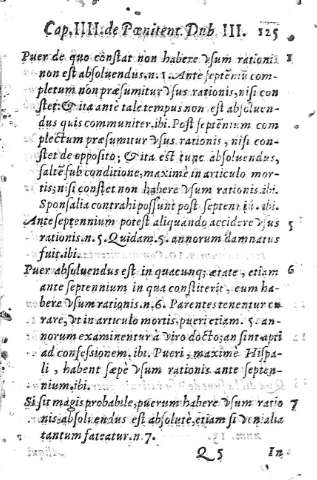 Cap. IIII. de Pœnitent. Dub III. 125
Puer de quo constat non habere vsum rationis 1
non est absoluendus. n. 1. Ante septẽniũ com-
pletum non præsumitur vsus rationis, nisi con
stet: & ita ante tale tempus non est absoluen-
dus quis communiter. ibi. Post septẽnium com
plectum præsumitur vsus rationis, nisi con-
stet de opposito; & ita est tunc absoluendus,
saltẽ sub conditione, maximè in articulo mor-
tis; nisi constet non habere vsum rationis. ibi.
Sponsalia contrahi possunt post septeni ibi.
Ante septennium potest aliquando accidere vsus 5
rationis. n. 5. Quidam. 5. annorum damnatus
fuit. ibi.
Puer absoluendus est in quacunq; ætate, etiam 6
ante septennium in qua constiterit, eum ha-
bere vsum rationis. n. 6. Parentes tenentur cu
rare, vt in articulo mortis, pueri etiam. 5. an-
norum examinentur à viro docto; an sint apti
ad confessionem. ibi. Pueri, maximè Hispa-
li, habent sæpe vsum rationis ante septen-
nium. ibi.
Si sit magis probabile, puerum habere vsum ratio 7
nis absoluendus est absolutè, etiam si venialia
tantum fateatur. n. 7.
Q 5 In